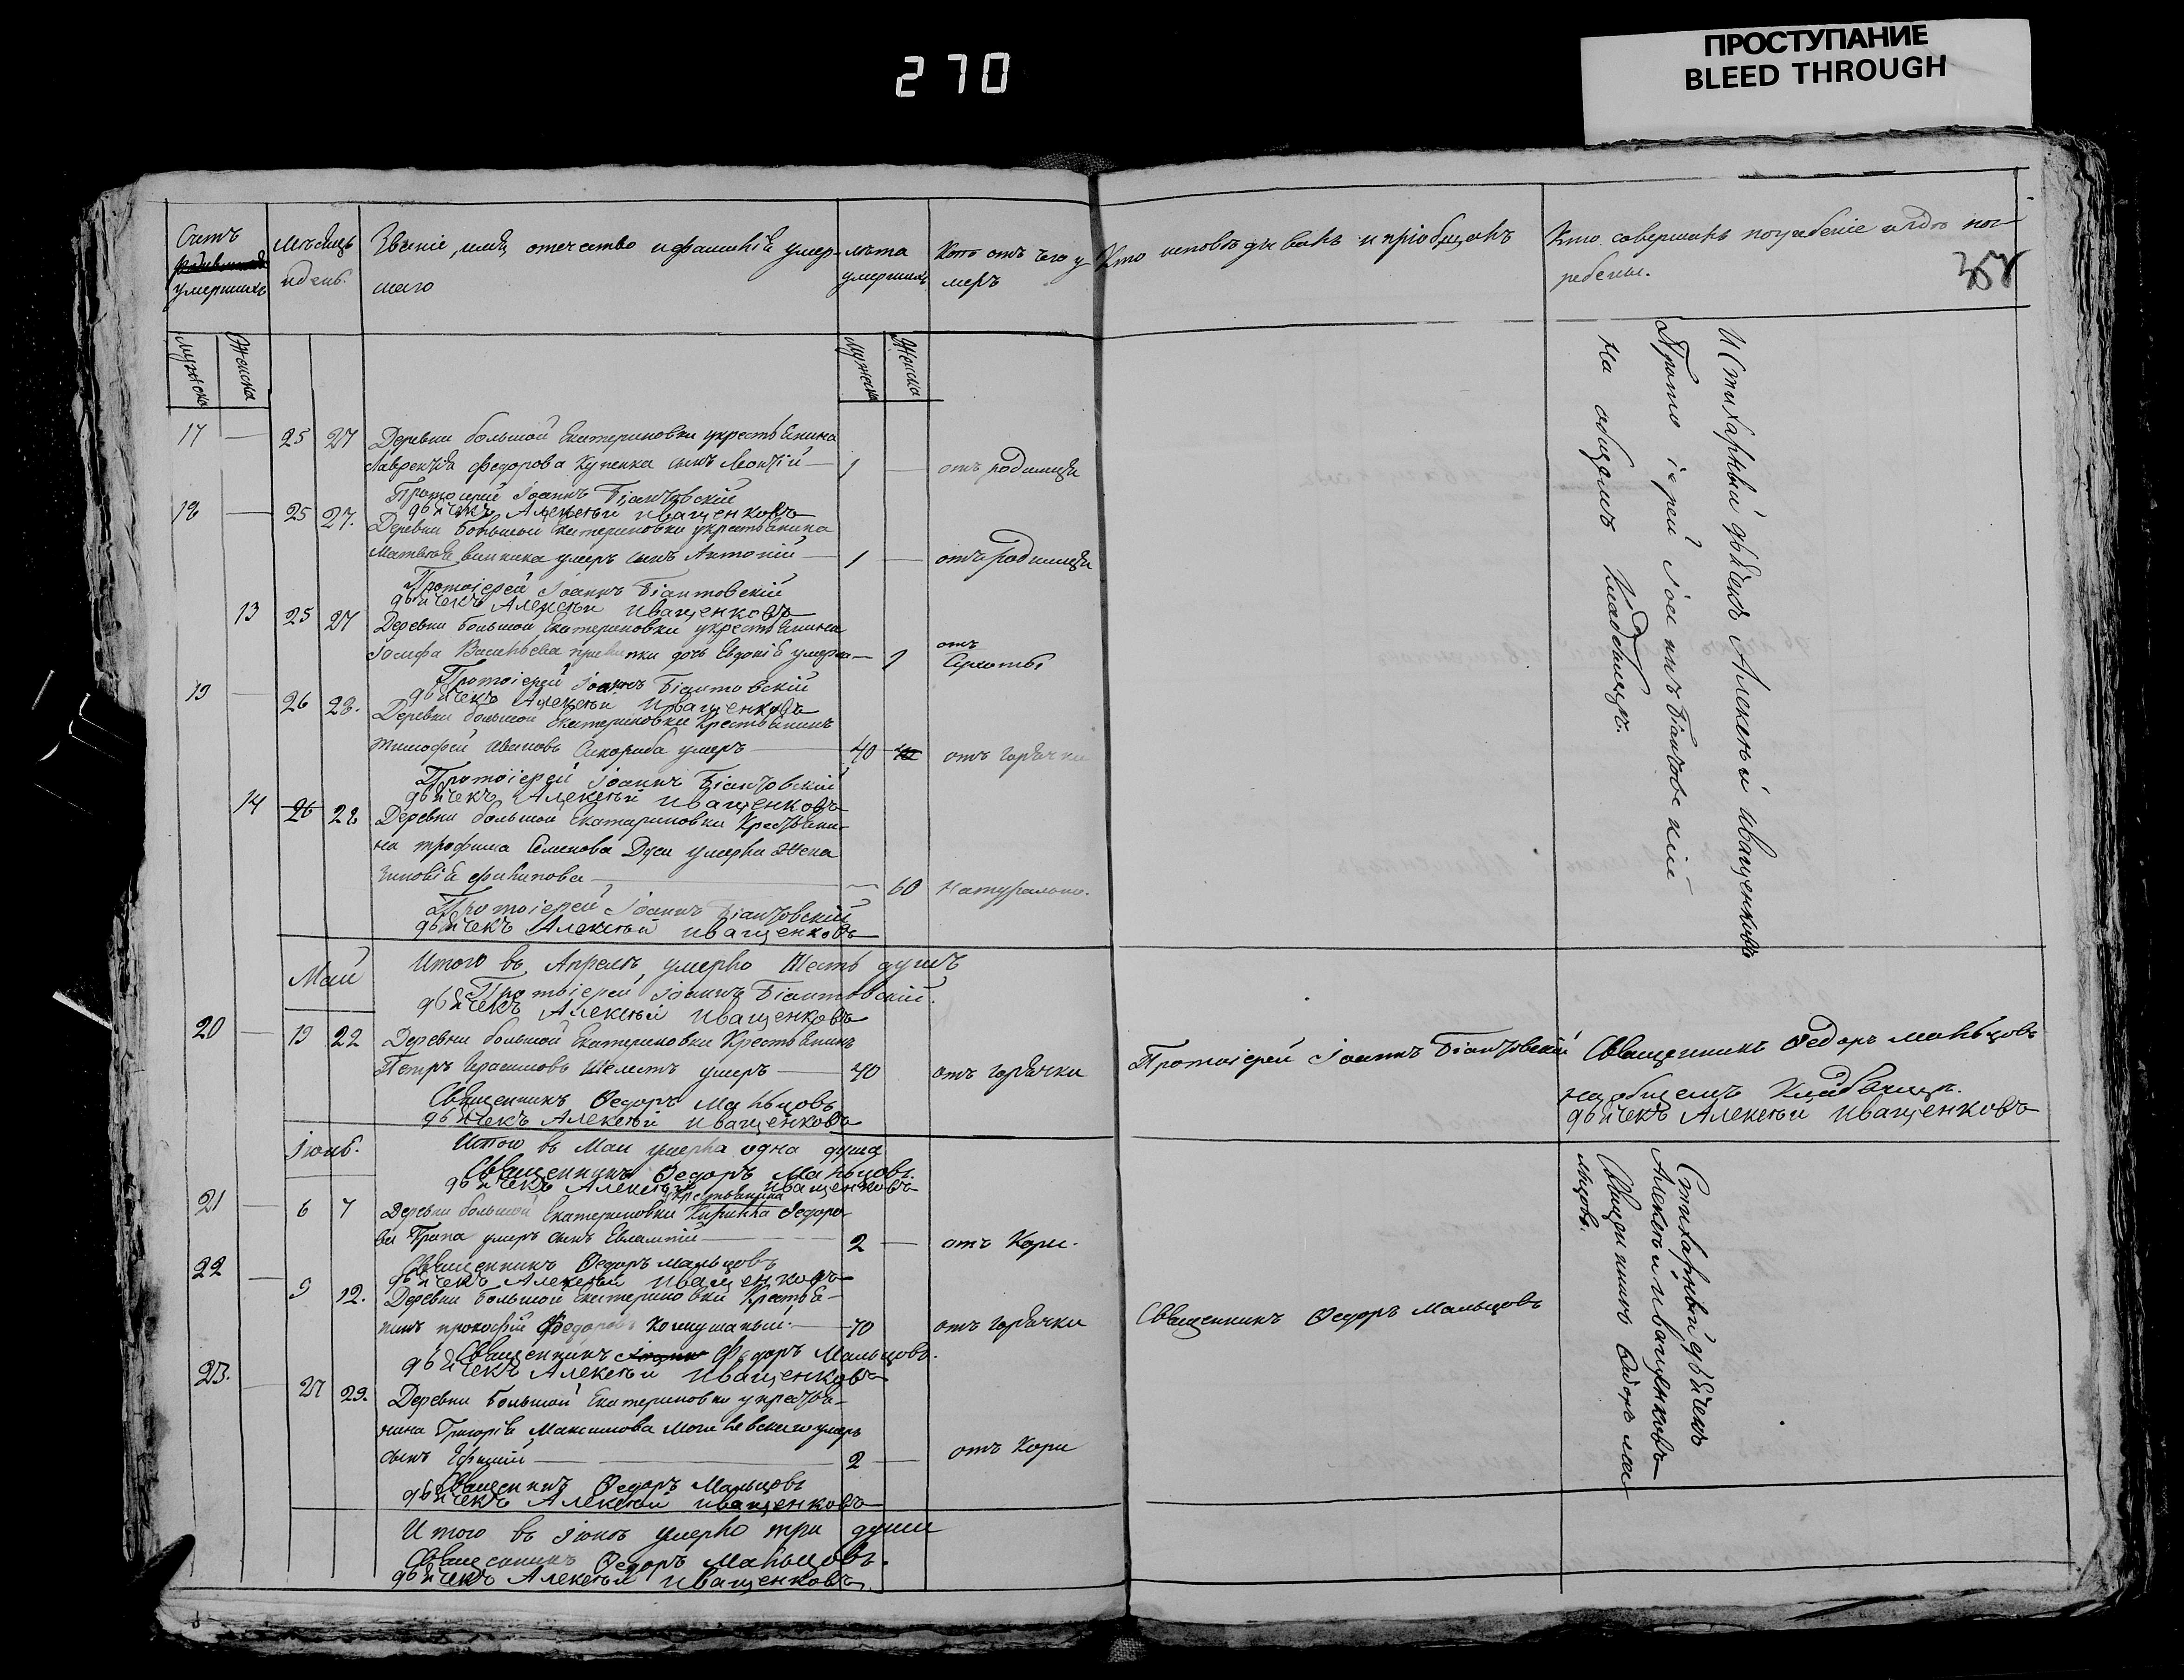 270
ПРОСТУПАНИЕ
BLEED THROUGH
Счетъ
умершихъ
Мѣсяцъ
и день.
Званіе, имя, отечество и фамилія умер-
шаго
лѣта
умершихъ
отъ чего у
меръ
Кто исповѣдывалъ и пріобщалъ
Кто совершалъ погребеніе и гдѣ пог-
ребены.
мужеска
женска
мужеска
женска
17 — 25 27 Деревни большой Екатериновки у крестьянина
Лаврентія Федорова сынъ — 1 — отъ родимца
Протоіерей Іоаннъ Біантовскій
дьячекъ Алексѣй Иващенковъ
18 — 25 27. Деревни большой Екатериновки у крестьянина
умеръ сынъ Антоній — 1 — отъ родимца
Протоіерей Іоаннъ Біантовскій
дьячекъ Алексѣй Иващенковъ
13 25 27 Деревни большой Екатериновки у крестьянина
Іосифа Васильева дочь Евдокія умерла — 1 отъ
Сухоты
Протоіерей Іоаннъ Біантовскій
дьячекъ Алексѣй Иващенковъ
19 — 26 28. Деревни большой Екатериновки Крестьянинъ
Тимофей Ивановъ умеръ — 40 отъ горячки
Протоіерей Іоаннъ Біантовскій
дьячекъ Алексѣй Иващенковъ
14 26 28 Деревни большой Екатериновки Крестьяни-
на трофима Семенова умерла Жена
Зиновія филипова — 60 Натурально.
Протоіерей Іоаннъ Біантовскій
дьячекъ Алексѣй Иващенковъ
И Стихарный дьячекъ Алексѣй Иващенковъ
Протоіерей Іоаннъ Біантовскій
На общемъ Кладбищѣ.
Май
Итого въ Апрелѣ умерло Шесть душъ
Протоіерей Іоаннъ Біантовскій.
дьячекъ Алексѣй Иващенковъ
20 — 19 22 Деревни большой Екатериновки Крестьянинъ
Петръ Шелестъ умеръ — 40 отъ горячки
Протоіерей Іоаннъ Біантовскій
Священникъ Ѳедоръ Мальцовъ
на общемъ Кладбищѣ.
дьячекъ Алексѣй Иващенковъ
Священникъ Ѳедоръ Мальцовъ
дьячекъ Алексѣй Иващенковъ
Іюнь.
Итого въ Маи умерла одна душа
Священникъ Ѳедоръ Мальцовъ.
дьячекъ Алексѣй Иващенковъ
21 — 6 7 Деревни большой Екатериновки крестьянина Кирилла Ѳедоро-
ва умеръ сынъ Евлампій — 2 — отъ Кори.
Священникъ Ѳедоръ Мальцовъ
дьячекъ Алексѣй Иващенковъ
22 — 9 12. Деревни большой Екатериновки Крестья-
нинъ прокофій Федоровъ — 70 отъ горячки
Священникъ Ѳедоръ Мальцовъ
Священникъ Федоръ Мальцовъ.
дьячекъ Алексѣй Иващенковъ
23. — 27 29. Деревни большой Екатериновки у крестья-
нина Григорія Максимова умеръ
сынъ — 2 — отъ Кори
Священникъ Ѳедоръ Мальцовъ
дьячекъ Алексѣй Иващенковъ
Стихарный дьячекъ
Алексѣй Иващенковъ
Священникъ Ѳедоръ Ма
льцовъ.
Итого въ Іюнѣ умерло три души
Священникъ Ѳедоръ Мальцовъ.
дьячекъ Алексѣй Иващенковъ.